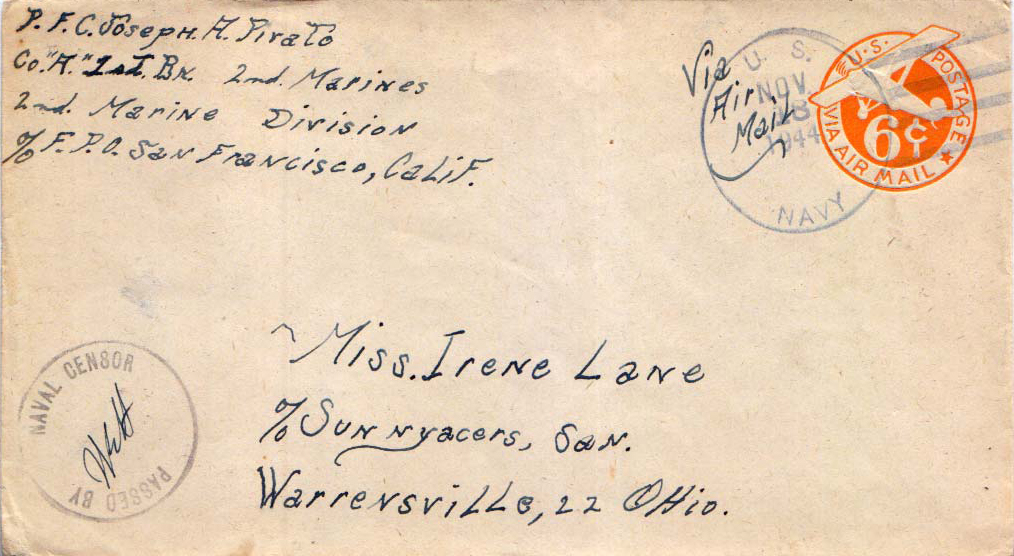 P.F.C. Joseph. A. Pirato
Co. "A." 1st. Bn. 2nd. Marines
2nd. Marine Division
℅ F.P.O. San Francisco, Calif.
Via
Air
Mail
U. S.
NOV.
8
1944
NAVY
U.S. POSTAGE
6¢
VIA AIR MAIL
NAVAL CENSOR
PASSED BY
Miss. Irene Lane
℅ Sunnyacers, San.
Warrensville, 22 Ohio.